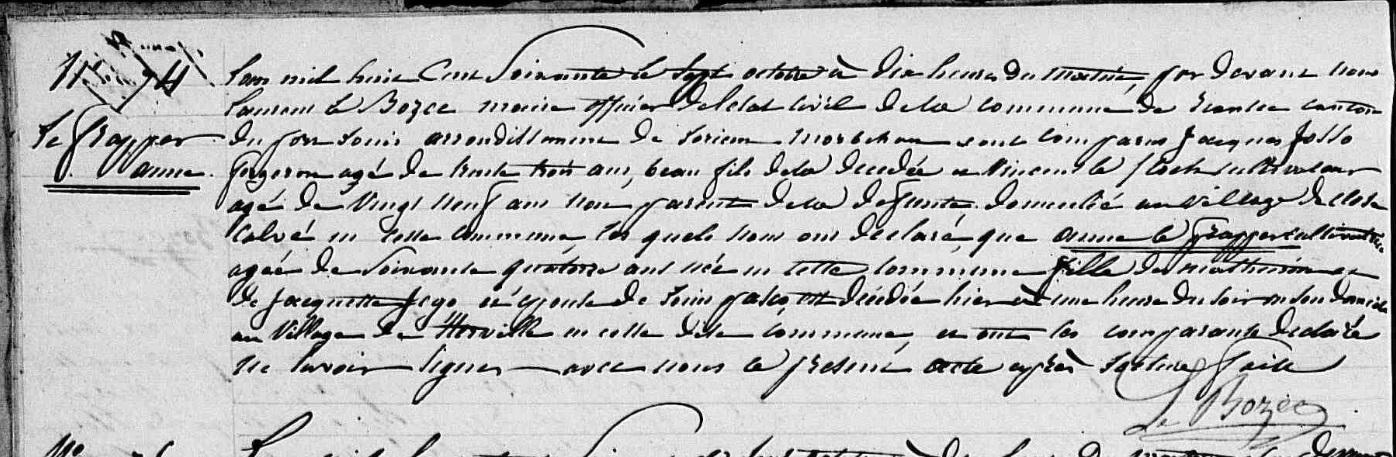 N° 74
Le Frapper
anne
L'an mil huit Cent Soixante le sept octobre à dix heures du matin, par devant nous
Laurent Le Bozec maire officier de l'état civil de la commune de riantec canton
du port Louis arrondissement de Lorient Morbihan sont comparus Jacques
forgeron agé de trente trois ans, beau fils de la décédée et Vincent le floch cultivateur
agé de Vingt neuf ans non parent de la defunte domicilié au Village de
en cette commune les quels nous ont déclaré, que anne le frapper cultivatrice
agée de Soixante quatorze ans née en cette commune fille de mathurin et
de Jacquette Jego épouse de Louis est décédée hier à une heure du soir en son domicile
au Village de en cette dite commune, et ont les comparants declaré
ne savoir signer avec nous le présent acte après lecture faite
Le Bozec